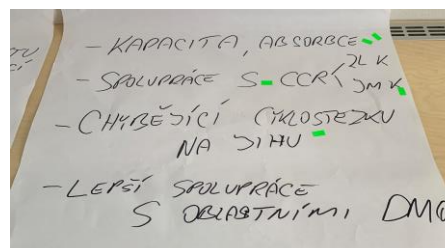 - KAPACITA, ABSORBCE
- SPOLUPRÁCE S CCRK ZLK
JMK
- CHYBĚJÍCÍ CYKLOSTEZKU
NA JIHU
- LEPŠÍ SPOLUPRÁCE
S OBLASTNÍMI DMO